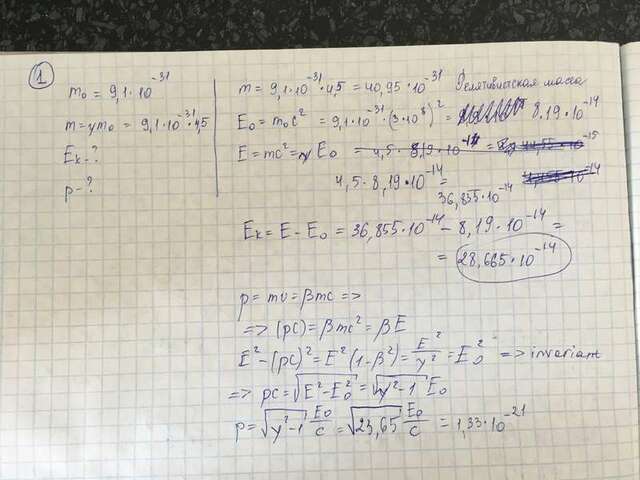 1
m₀ = 9,1·10⁻³¹
m = γm₀ = 9,1·10⁻³¹·4,5
Eₖ - ?
p - ?
m = 9,1·10⁻³¹·4,5 = 40,95·10⁻³¹ Релятивистская масса
E₀ = m₀c² = 9,1·10⁻³¹·(3·10⁸)² = 8,19·10⁻¹⁴
E = mc² = γE₀ = 4,5·8,19·10⁻¹⁴ =
4,5·8,19·10⁻¹⁴ =
36,855·10⁻¹⁴
Eₖ = E - E₀ = 36,855·10⁻¹⁴ - 8,19·10⁻¹⁴ =
= 28,665·10⁻¹⁴
p = mv = βmc =>
=> (pc) = βmc² = βE
E² - (pc)² = E²(1-β²) = E²/γ² = E₀² => invariant
=> pc = √(E² - E₀²) = √(γ² - 1) E₀
p = √(γ² - 1) E₀/c = √23,65 E₀/c = 1,33·10⁻²¹